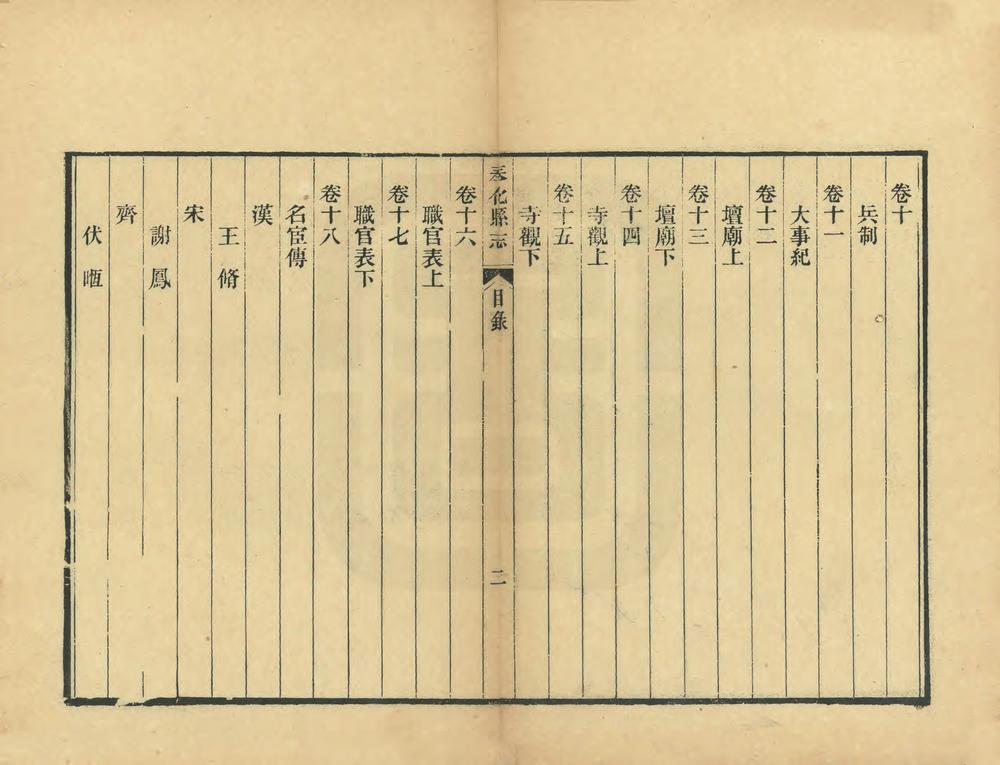 卷十
兵制
卷十一
大事紀
卷十二
壇廟上
卷十三
壇廟下
卷十四
寺觀上
卷十五
寺觀下
奉化縣志
目錄
二
卷十六
職官表上
卷十七
職官表下
卷十八
名宦傳
漢
王脩
宋
謝鳳
齊
伏暅